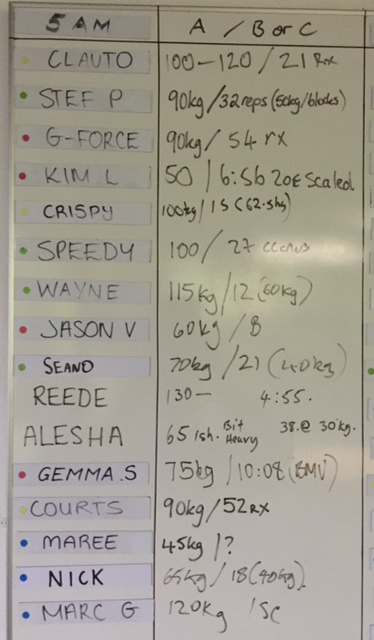 5 AM A / B or C
CLAUTO 100-120 / 21 Rx
STEF P 90kg / 32 reps (50kg/blocks)
G-FORCE 90kg / 54 rx
KIM L 50 / 6:56 Scaled
CRISPY 100kg / 15 (62.5kg)
SPEEDY 100 / 27
WAYNE 115kg / 12 (60kg)
JASON V 60kg / 8
SEANO 70kg / 21 (40kg)
REEDE 130- 4:55.
ALESHA 65 ish. Bit Heavy 38 @ 30kg.
GEMMA.S 75kg / 10:08 (BMV)
COURTS 90kg / 52 RX
MAREE 45kg / ?
NICK 65kg / 18 (40kg)
MARC G 120kg / SC